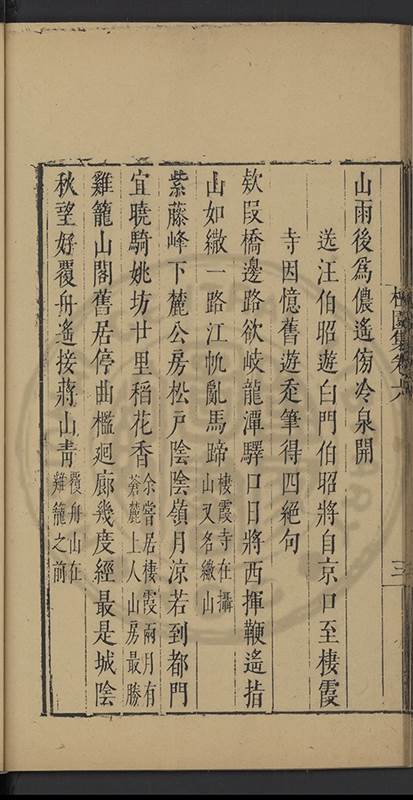 山雨後爲儂遙傍冷泉開
送汪伯昭遊白門伯昭將自京口至棲霞
寺因憶舊遊走筆得四絕句
欸段橋邊路欲岐龍潭驛口日將西揮鞭遙指
山如繖一路江帆亂馬蹄
棲霞寺在攝
山又名繖山
紫藤峰下麓公房松戶陰陰嶺月涼若到都門
宜曉騎姚坊廿里稻花香
余嘗居棲霞兩月有
蒼麓上人山房最勝
雞籠山閣舊居停曲檻廻廊幾度經最是城陰
秋望好覆舟遙接蔣山青
覆舟山在
雞籠之前
園集卷六
三